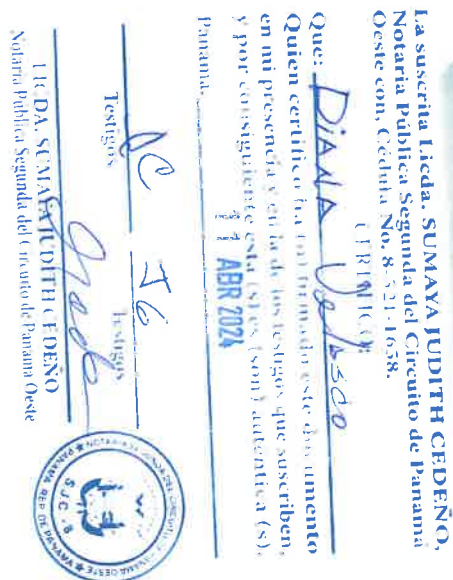 La suscrita Licda. SUMAYA JUDITH CEDEÑO,
Notaria Pública Segunda del Circuito de Panamá
Oeste con, Cédula No. 8-521-1658.
CERTIFICO:
Que: Diana Velasco
Quien certifico ha (n) firmado este documento
en mi presencia y en la de los testigos que suscriben,
y por consiguiente esta (s) es (son) autentica (s).
ABR 2024
Panamá,
DC JG
Testigos Testigos
LICDA. SUMAYA JUDITH CEDEÑO
Notaria Pública Segunda del Circuito de Panamá Oeste
REP. DE PANAMA